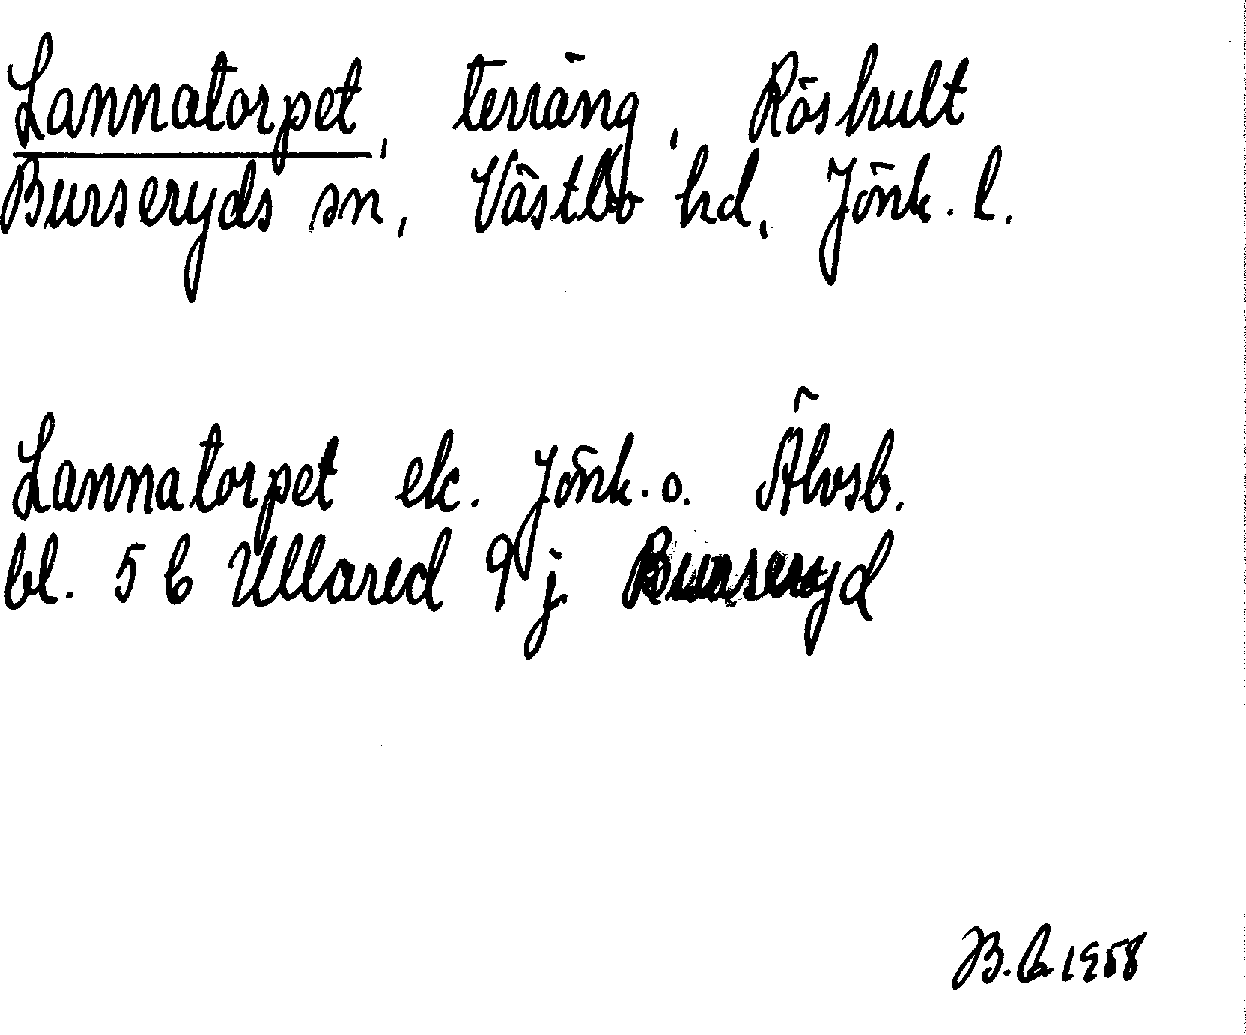 Lannatorpet, terräng, Röshult
Burseryds sn, Västbo hd, Jönk. l.
Lannatorpet ek. Jönk. o. Älvsb.
bl. 5 b Ullared 9 j Burseryd
1958